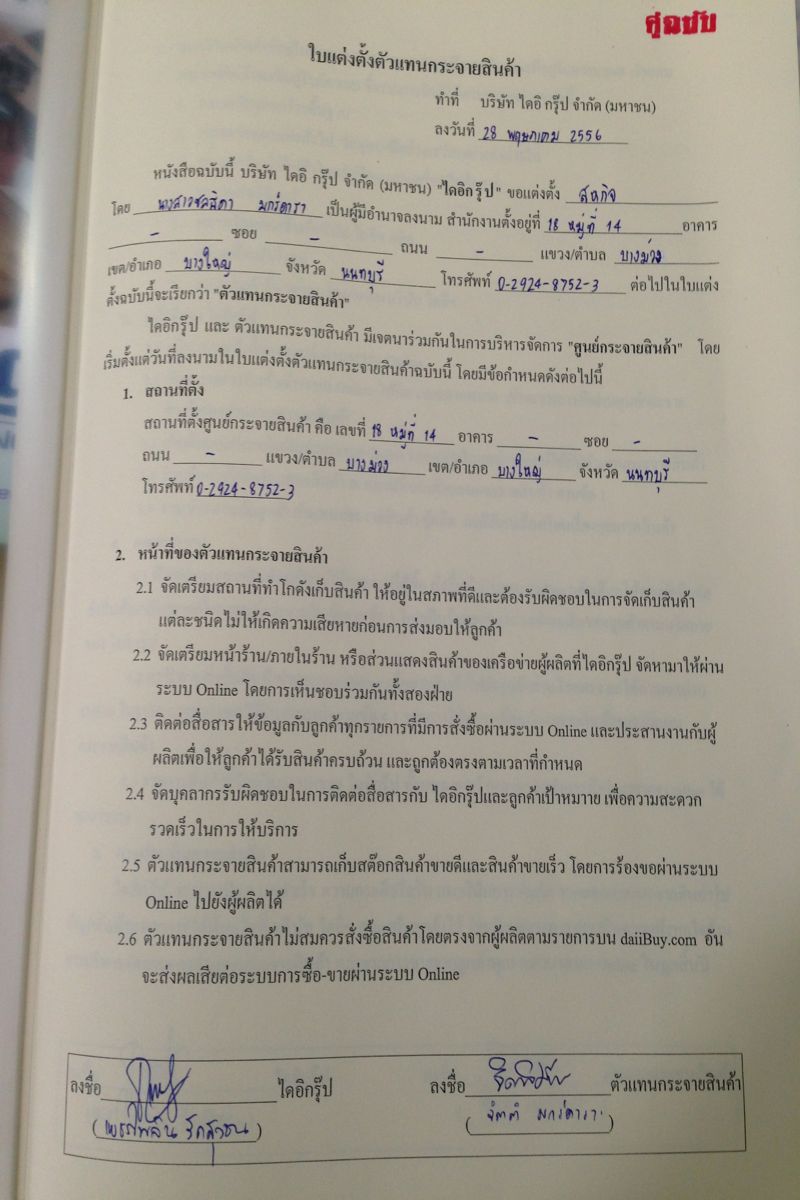 คู่ฉบับ
ใบแต่งตั้งตัวแทนกระจายสินค้า
ทำที่ บริษัท ไดอิ กรุ๊ป จำกัด (มหาชน)
ลงวันที่ 28 พฤษภาคม 2556
หนังสือฉบับนี้ บริษัท ไดอิ กรุ๊ป จำกัด (มหาชน) "ไดอิกรุ๊ป" ขอแต่งตั้ง สหกิจ
โดย นางสาวชลธิดา มกร์ดารา เป็นผู้มีอำนาจลงนาม สำนักงานตั้งอยู่ที่ 18 หมู่ที่ 14 อาคาร
- ซอย - ถนน - แขวง/ตำบล บางม่วง
เขต/อำเภอ บางใหญ่ จังหวัด นนทบุรี โทรศัพท์ 0-2924-8752-3 ต่อไปในใบแต่ง
ตั้งฉบับนี้จะเรียกว่า "ตัวแทนกระจายสินค้า"
ไดอิกรุ๊ป และ ตัวแทนกระจายสินค้า มีเจตนาร่วมกันในการบริหารจัดการ "ศูนย์กระจายสินค้า" โดย
เริ่มตั้งแต่วันที่ลงนามในใบแต่งตั้งตัวแทนกระจายสินค้าฉบับนี้ โดยมีข้อกำหนดดังต่อไปนี้
1. สถานที่ตั้ง
สถานที่ตั้งศูนย์กระจายสินค้า คือ เลขที่ 18 หมู่ที่ 14 อาคาร - ซอย -
ถนน - แขวง/ตำบล บางม่วง เขต/อำเภอ บางใหญ่ จังหวัด นนทบุรี
โทรศัพท์ 0-2924-8752-3
2. หน้าที่ของตัวแทนกระจายสินค้า
2.1 จัดเตรียมสถานที่ทำโกดังเก็บสินค้า ให้อยู่ในสภาพที่ดีและต้องรับผิดชอบในการจัดเก็บสินค้า
แต่ละชนิดไม่ให้เกิดความเสียหายก่อนการส่งมอบให้ลูกค้า
2.2 จัดเตรียมหน้าร้าน/ภายในร้าน หรือส่วนแสดงสินค้าของเครือข่ายผู้ผลิตที่ไดอิกรุ๊ป จัดหามาให้ผ่าน
ระบบ Online โดยการเห็นชอบร่วมกันทั้งสองฝ่าย
2.3 ติดต่อสื่อสารให้ข้อมูลกับลูกค้าทุกรายการที่มีการสั่งซื้อผ่านระบบ Online และประสานงานกับผู้
ผลิตเพื่อให้ลูกค้าได้รับสินค้าครบถ้วน และถูกต้องตรงตามเวลาที่กำหนด
2.4 จัดบุคลากรรับผิดชอบในการติดต่อสื่อสารกับ ไดอิกรุ๊ปและลูกค้าเป้าหมาาย เพื่อความสะดวก
รวดเร็วในการให้บริการ
2.5 ตัวแทนกระจายสินค้าสามารถเก็บสต๊อกสินค้าขายดีและสินค้าขายเร็ว โดยการร้องขอผ่านระบบ
Online ไปยังผู้ผลิตได้
2.6 ตัวแทนกระจายสินค้าไม่สมควรสั่งซื้อสินค้าโดยตรงจากผู้ผลิตตามรายการบน daiiBuy.com อัน
จะส่งผลเสียต่อระบบการซื้อ-ขายผ่านระบบ Online
ลงชื่อ ไดอิกรุ๊ป ลงชื่อ ตัวแทนกระจายสินค้า